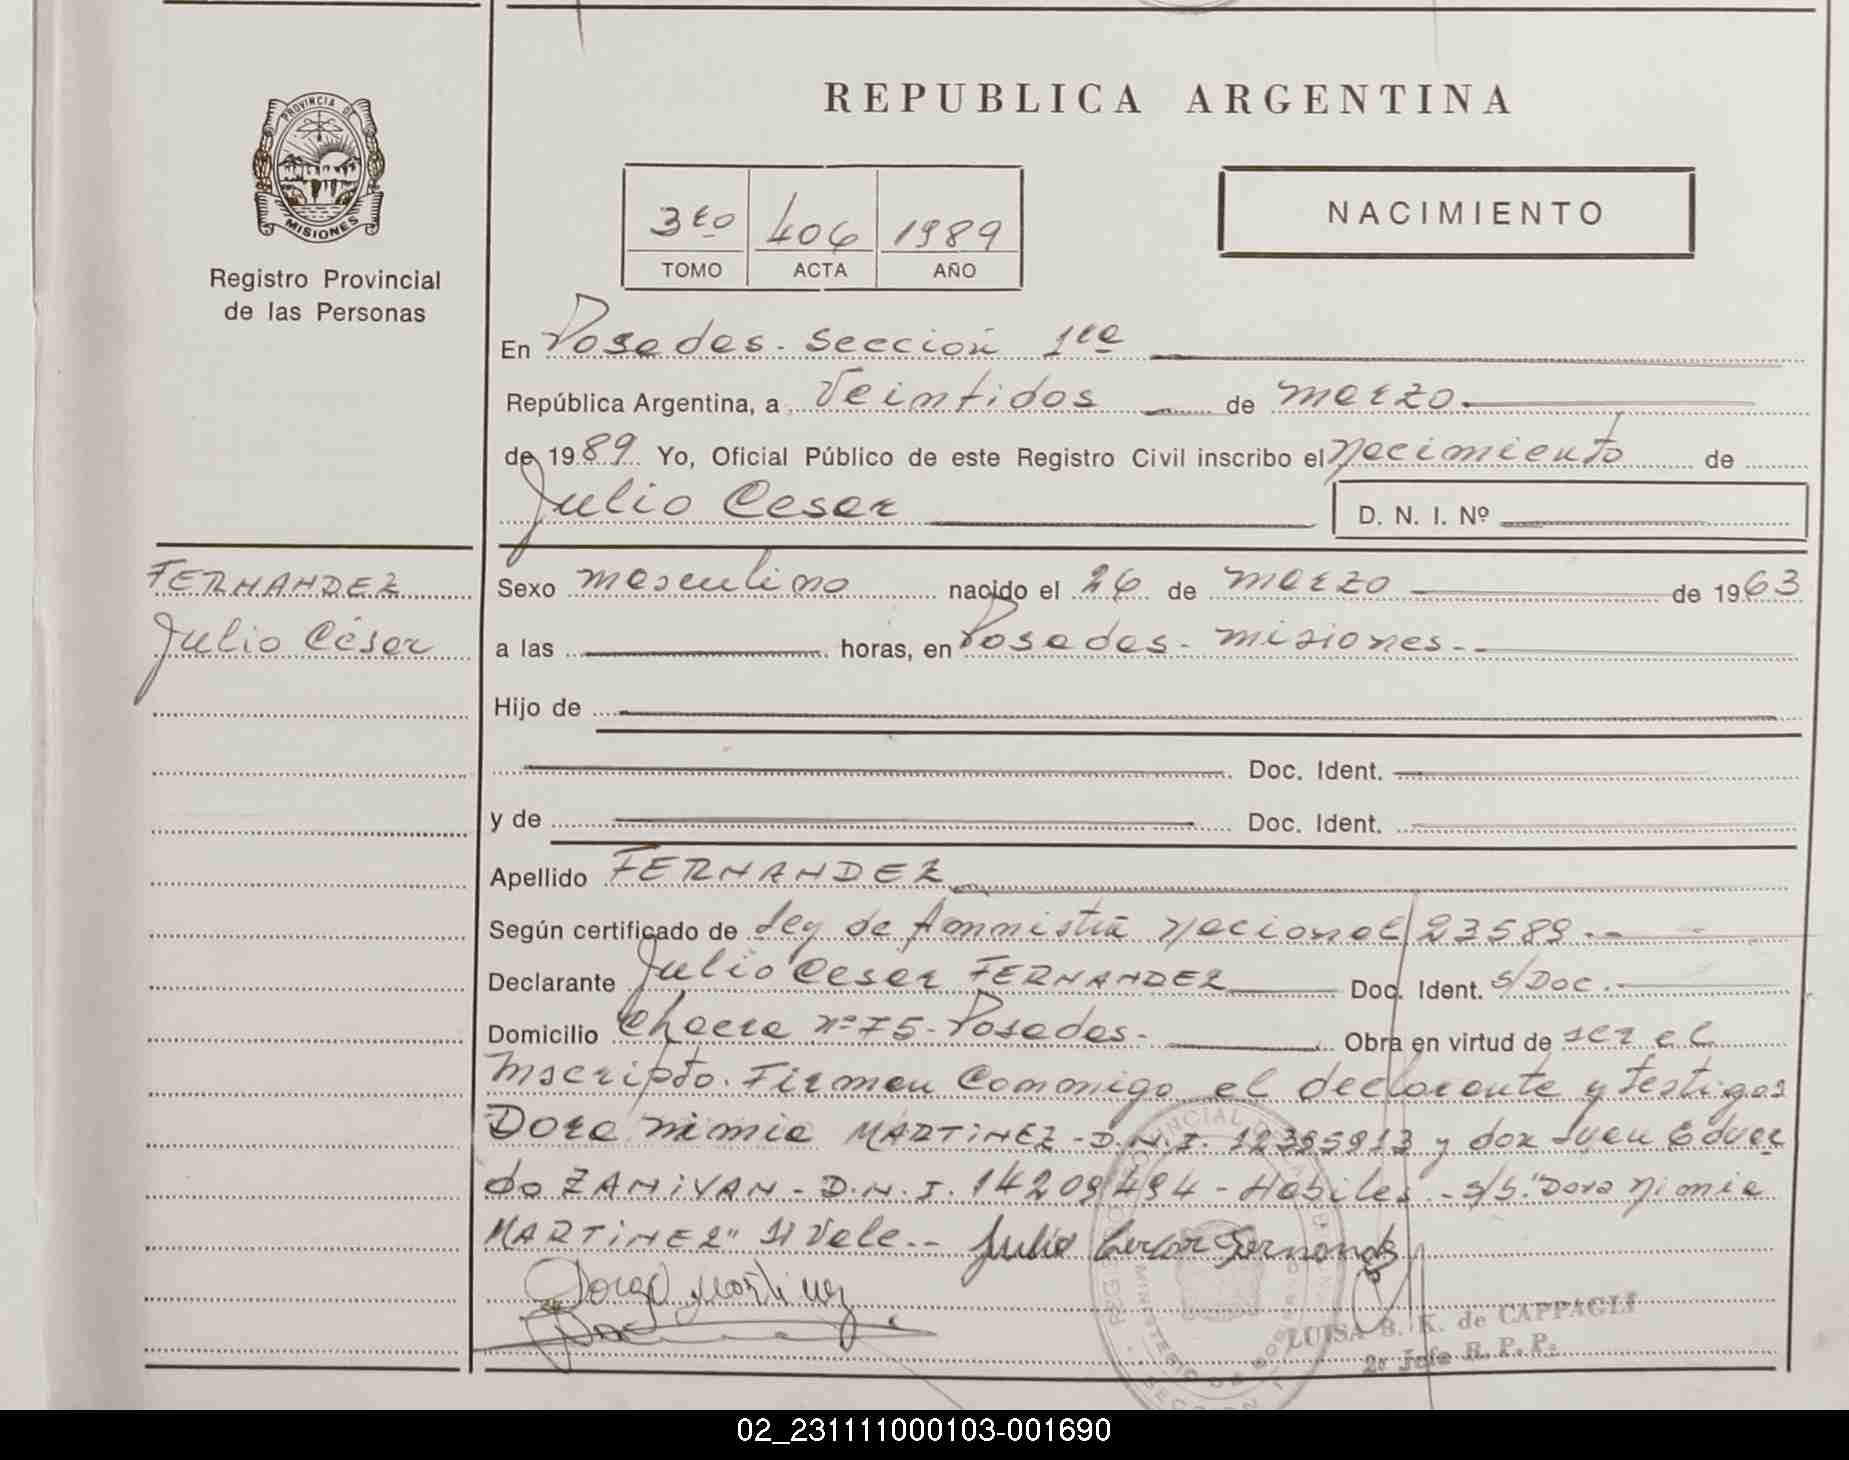 REPUBLICA ARGENTINA
PROVINCIA DE
MISIONES
Registro Provincial
de las Personas
3to 406 1989
TOMO ACTA AÑO
NACIMIENTO
En Posadas - Sección 1ra
República Argentina, a Veintidos de marzo
de 1989 Yo, Oficial Público de este Registro Civil inscribo el Nacimiento de
Julio Cesar D. N. I. Nº
FERNANDEZ
Julio César
Sexo masculino nacido el 26 de marzo de 1963
a las horas, en Posadas - misiones.-
Hijo de
Doc. Ident.
y de Doc. Ident.
Apellido FERNANDEZ
Según certificado de Ley de Amnistia Nacional 23589.-
Declarante Julio Cesar FERNANDEZ Doc. Ident. s/Doc.-
Domicilio Chacra nº 75 - Posadas - Obra en virtud de ser el
Inscripto. Firman Conmigo el declarante y testigos
Dora Nimia MARTINEZ - D.N.I. 12395913 y don Juan Eduar
do ZANIVAN - D.N.I. 14209494 - Habiles.- s/b. "Dora Nimia
MARTINEZ" Vale.-- Julio Cesar Fernandez
LUISA B. K. de CAPPAGLI
2º Jefe R. P. P.
02_231111000103-001690